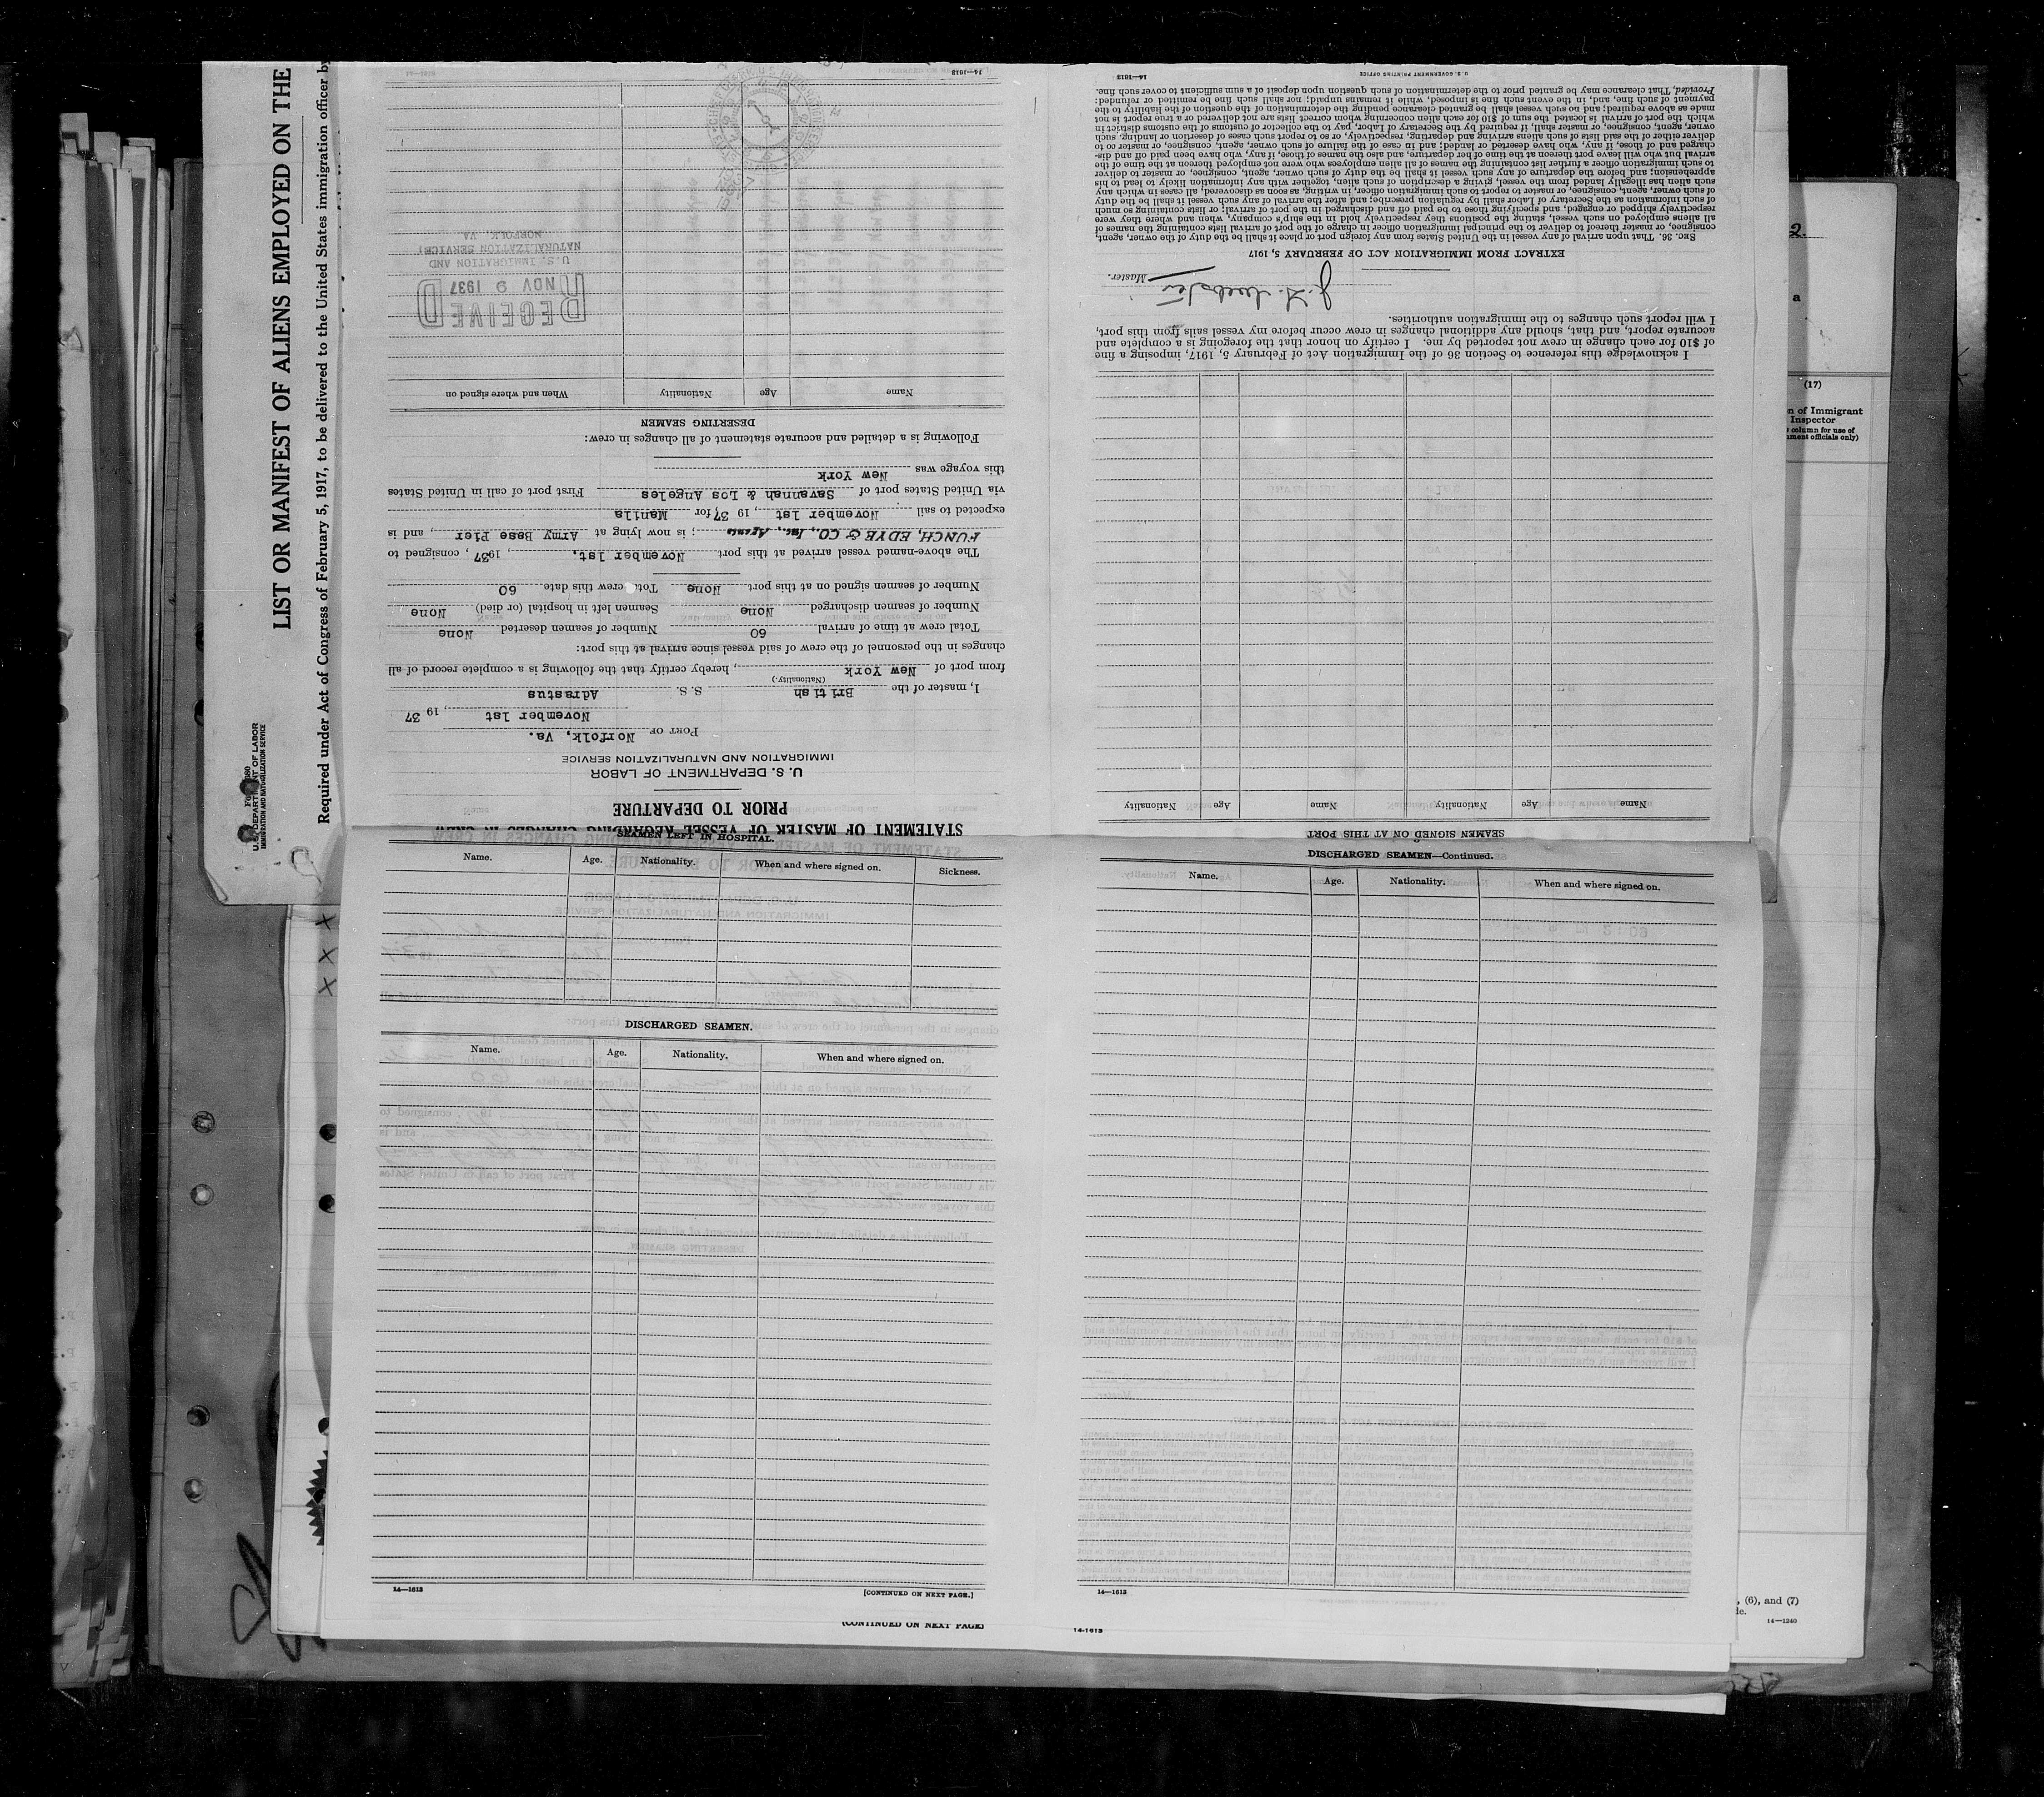 LIST OR MANIFEST OF ALIENS EMPLOYED ON THE
Required under Act of Congress of February 5, 1917, to be delivered to the United States immigration officer by
U. S. DEPARTMENT OF LABOR
IMMIGRATION AND NATURALIZATION SERVICE
STATEMENT OF MASTER OF VESSEL REGARDING CHANGES IN CREW
PRIOR TO DEPARTURE
U. S. DEPARTMENT OF LABOR
IMMIGRATION AND NATURALIZATION SERVICE
PORT OF Norfolk, Va.
November 1st, 19 37
I, master of the British S. S. Adrastus
(Nationality.)
from port of New York, hereby certify that the following is a complete record of all
changes in the personnel of the crew of said vessel since arrival at this port:
Total crew at time of arrival 60 Number of seamen deserted None
Number of seamen discharged None Seamen left in hospital (or died) None
Number of seamen signed on at this port None Total crew this date 60
The above-named vessel arrived at this port November 1st, , 1937, consigned to
FUNCH, EDYE & CO., Inc., Agents ; is now lying at Army Base Pier, and is
expected to sail November 1st, 19 37, for Manila
via United States port of Savannah & Los Angeles First port of call in United States
this voyage was New York
Following is a detailed and accurate statement of all changes in crew:
DESERTING SEAMEN
Name Age Nationality When and where signed on
RECEIVED
NOV 9 1937
U. S. IMMIGRATION AND
NATURALIZATION SERVICE
NORFOLK, VA.
14—1613
SEAMEN SIGNED ON AT THIS PORT
Name Age Nationality Name Age Nationality
I acknowledge this reference to Section 36 of the Immigration Act of February 5, 1917, imposing a fine
of $10 for each change in crew not reported by me. I certify on honor that the foregoing is a complete and
accurate report, and that, should any additional changes in crew occur before my vessel sails from this port,
I will report such changes to the immigration authorities.
Master.
EXTRACT FROM IMMIGRATION ACT OF FEBRUARY 5, 1917
SEC. 36. That upon arrival of any vessel in the United States from any foreign port or place it shall be the duty of the owner, agent,
consignee, or master thereof to deliver to the principal immigration officer in charge of the port of arrival lists containing the names of
all aliens employed on such vessel, stating the positions they respectively hold in the ship's company, when and where they were
respectively shipped or engaged, and specifying those to be paid off and discharged in the port of arrival; or lists containing so much
of such information as the Secretary of Labor shall by regulation prescribe; and after the arrival of any such vessel it shall be the duty
of such owner, agent, consignee, or master to report to such immigration officer, in writing, as soon as discovered, all cases in which any
such alien has illegally landed from the vessel, giving a description of such alien, together with any information likely to lead to his
apprehension; and before the departure of any such vessel it shall be the duty of such owner, agent, consignee, or master to deliver
to such immigration officer a further list containing the names of all alien employees who were not employed thereon at the time of the
arrival but who will leave port thereon at the time of her departure, and also the names of those, if any, who have been paid off and dis-
charged and of those, if any, who have deserted or landed; and in case of the failure of such owner, agent, consignee, or master so to
deliver either of the said lists of such aliens arriving and departing, respectively, or so to report such cases of desertion or landing, such
owner, agent, consignee, or master, shall, if required by the Secretary of Labor, pay to the collector of customs of the customs district in
which the port of arrival is located, the sum of $10 for each alien concerning whom correct lists are not delivered or a true report is not
made as above required; and no such vessel shall be granted clearance pending the determination of the question of the liability to the
payment of such fine, and, in the event such fine is imposed, while it remains unpaid; nor shall such fine be remitted or refunded:
Provided, That clearance may be granted prior to the determination of such question upon deposit of a sum sufficient to cover such fine.
U. S. GOVERNMENT PRINTING OFFICE
14—1613
SEAMEN LEFT IN HOSPITAL.
Name. Age. Nationality. When and where signed on. Sickness.
DISCHARGED SEAMEN.
Name. Age. Nationality. When and where signed on.
14—1613
[CONTINUED ON NEXT PAGE.]
(CONTINUED ON NEXT PAGE)
DISCHARGED SEAMEN—Continued.
Name. Age. Nationality. When and where signed on.
14—1613
14-1613
2.
a
(17)
n of Immigrant
Inspector
column for use of
ment officials only)
, (6), and (7)
le.
14—1240
X
X
X